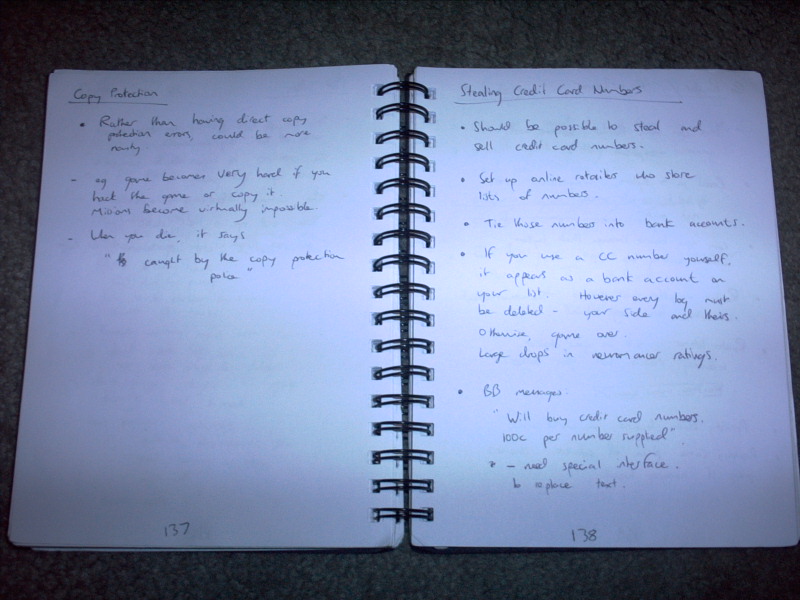 Copy Protection
• Rather than having direct copy
protection errors, could be more
nasty
- eg game becomes very hard if you
hack the game or copy it.
Missions become virtually impossible.
- When you die, it says
" caught by the copy protection
police"
137
Stealing Credit Card Numbers
• Should be possible to steal and
sell credit card numbers.
• Set up online retailers who store
lists of numbers.
• Tie those numbers into bank accounts.
• If you use a CC number yourself,
it appears as a bank account on
your list. However every log must
be deleted - your side and theirs.
Otherwise, game over.
Large drops in neuromancer ratings.
• BB messages.
"Will buy credit card numbers.
100c per number supplied".
- need special interface.
to replace text.
138